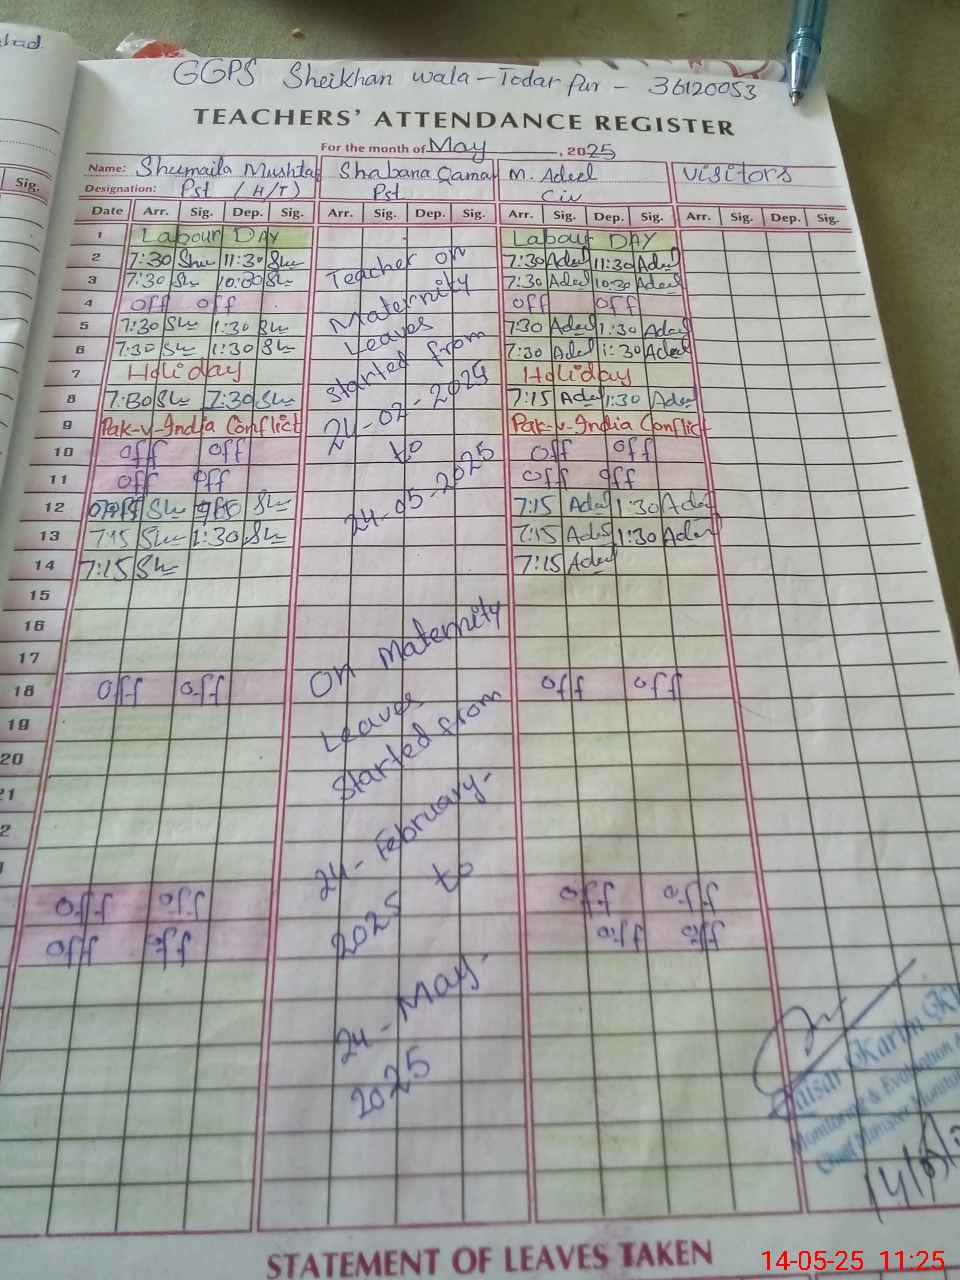 GGPS Sheikhan wala - Todar Pur - 36120053
TEACHERS' ATTENDANCE REGISTER
For the month of May, 2025
Name: Shumaila Mushtaq Shabana Qamar M. Adeel visitors
Designation: Pst (H/T) Pst Civ
Sig.
Date Arr. Sig. Dep. Sig. Arr. Sig. Dep. Sig. Arr. Sig. Dep. Sig. Arr. Sig. Dep. Sig.
1 Labour DAY Labour DAY
2 7:30 Shu 11:30 Shu 7:30 Adeel 11:30 Adeel
3 7:30 Sh 10:30 Sh 7:30 Adeel 10:30 Adeel
4 Off off off off
5 7:30 Sh 1:30 Sh 7:30 Adeel 1:30 Adeel
6 7:30 Sh 1:30 Sh 7:30 Adeel 1:30 Adeel
7 Holiday Holiday
8 7:30 Sh 7:30 Sh 7:15 Adeel 1:30 Adeel
9 Pak-v-India Conflict Pak-v-India Conflict
10 off off off off
11 off off off off
12 Sh Sh 7:15 Adeel 1:30 Adeel
13 7:15 Sh 1:30 Sh 7:15 Adeel 1:30 Adeel
14 7:15 Sh 7:15 Adeel
15
16
17
18 off off off off
19
20
21
2
off off off off
off off off off
Teacher on
Maternity
Leaves
started from
24-02-2025
to
24-05-2025
On Maternity
Leaves
Started from
24-February-
2025 to
24-May-
2025
Karim
Monitoring & Evaluation
Chief Minister Monitoring
STATEMENT OF LEAVES TAKEN
14-05-25 11:25